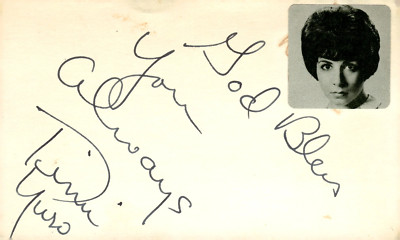 God Bless
You
Always
Timi
Yuro